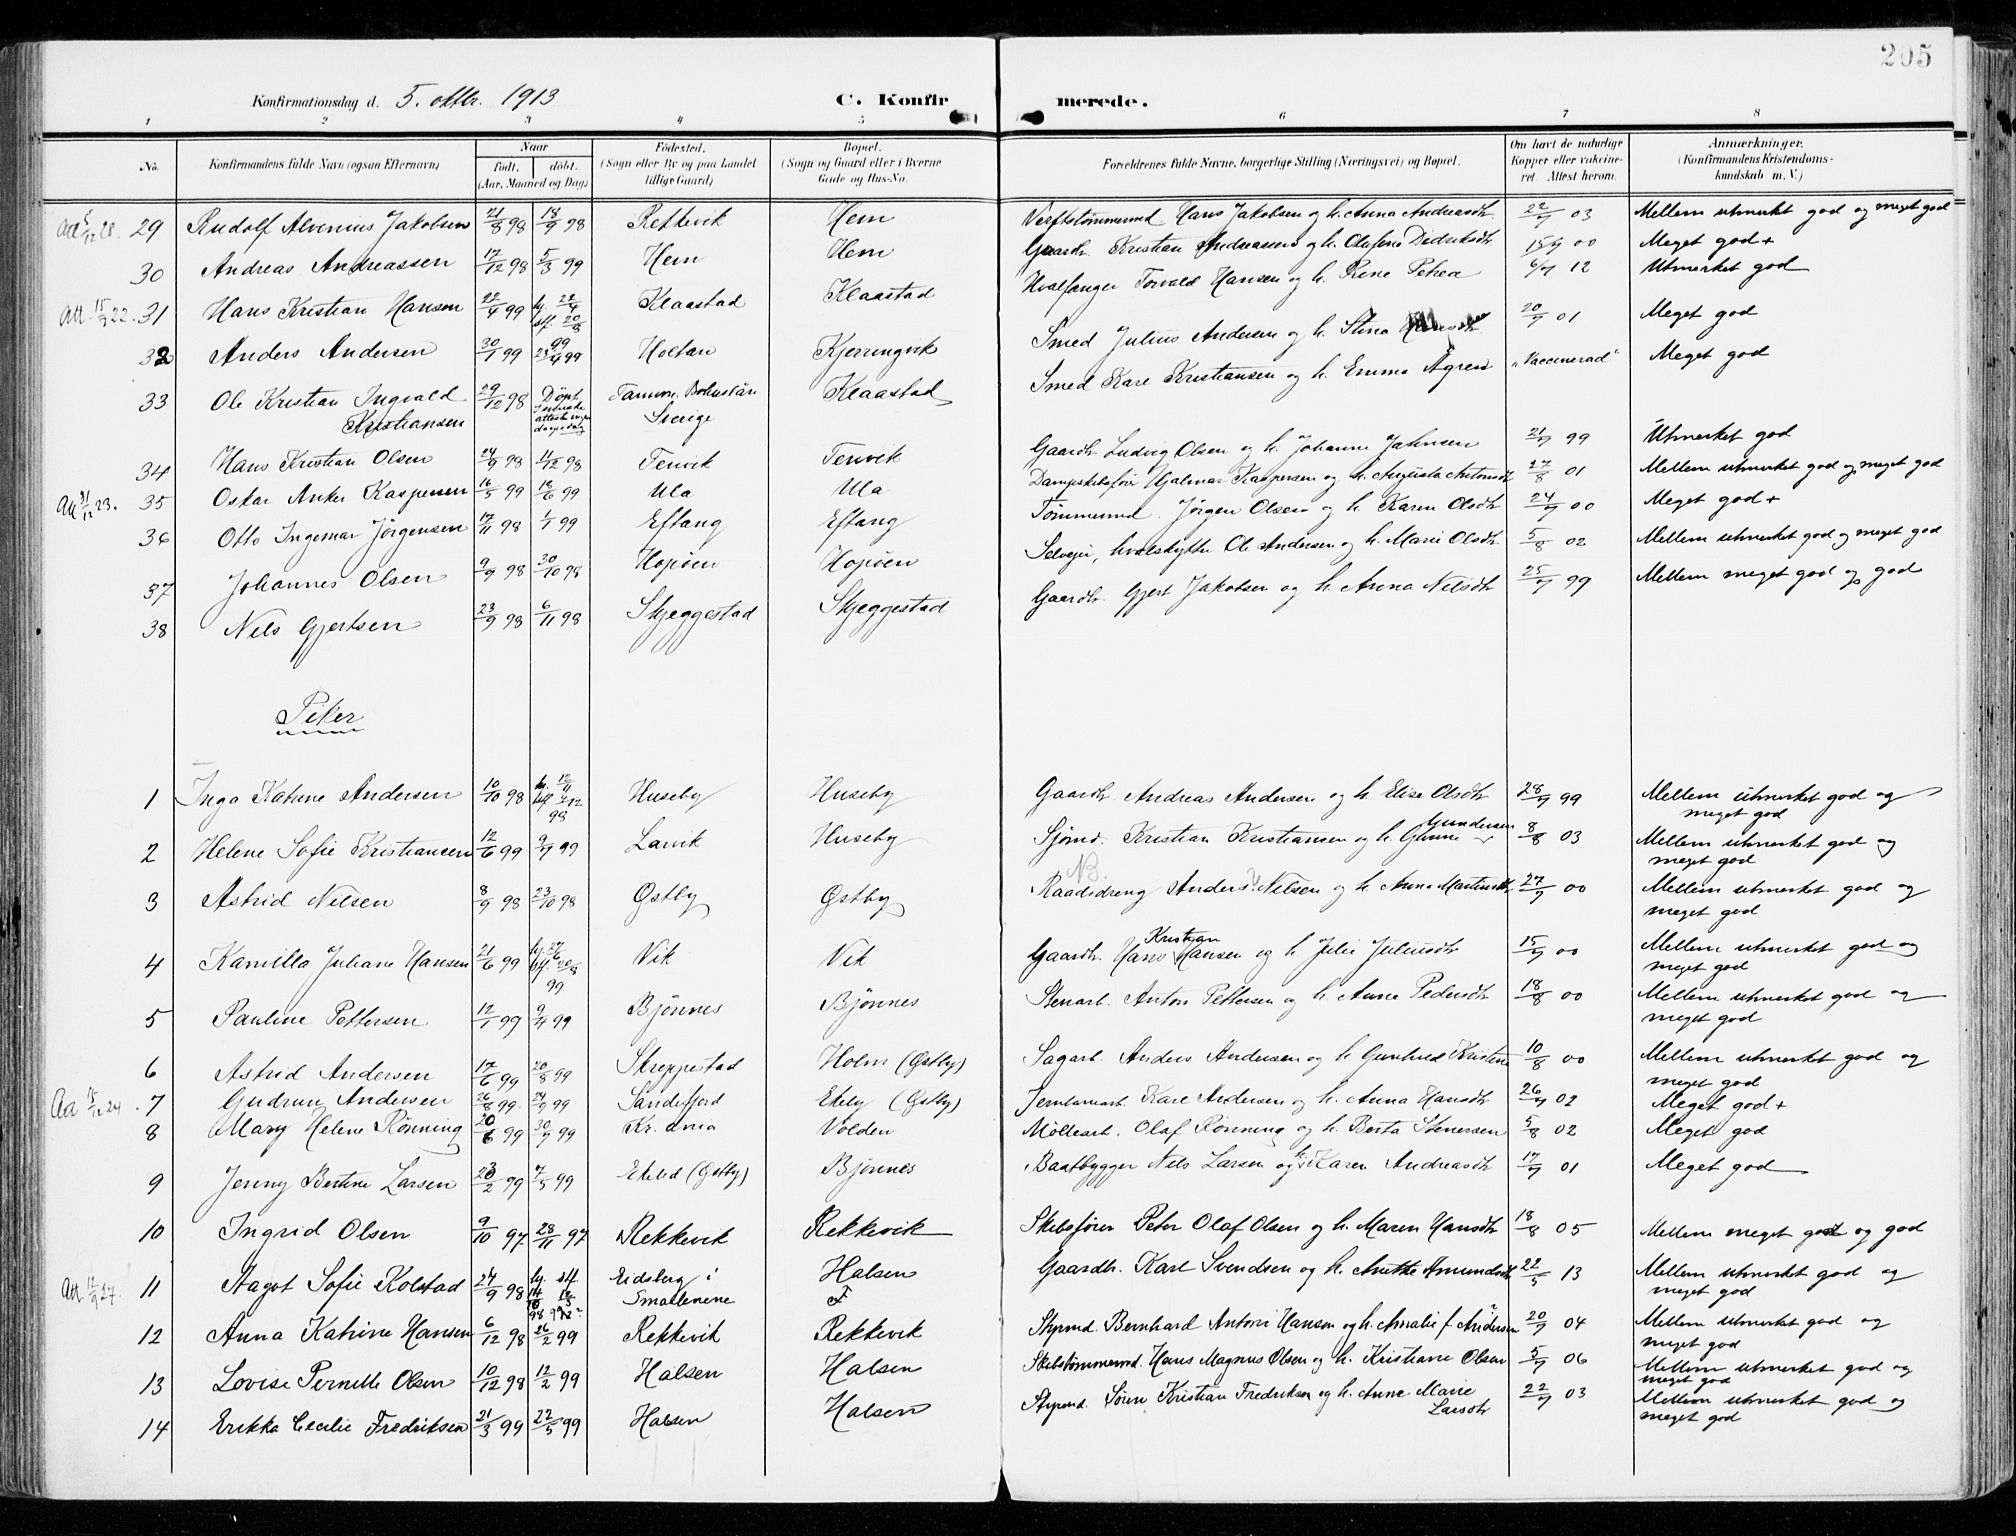 205
Konfirmationsdag d. 5. oktbr. 1913 C. Konfirmerede.
1 2 3 4 5 6 7 8
No. Konfirmandens fulde Navn (ogsaa Efternavn) Naar født. døbt. (Aar, Maaned og Dag) Fødested. (Sogn eller By og paa Landet tillige Gaard) Bopæl. (Sogn og Gaard eller i Byerne Gade og Hus-No. Forældrenes fulde Navne, borgerlige Stilling (Næringsvei) og Bopæl. Om havt de naturlige Kopper eller vakcineret. Attest herom. Anmærkninger. (Konfirmandens Kristendomskundskab m. V.)
Att 5/12 28. 29 Rudolf Alvenius Jakobsen 21/8 98 18/9 98 Rekkevik Hem Verftstømmermd. Hans Jakobsen og h. Anna Andreasdtr. 22/7 03 Mellem utmerket god og meget god
30 Andreas Andreassen 17/12 98 5/3 99 Hem Hem Gaardbr. Kristian Andreassen og h. Olufine Didriksdtr. 15/9 00 Meget god +
Att. 15/7 22. 31 Hans Kristian Hansen 22/4 99 hj. 22/4 stf. 20/8 99 Klaastad Klaastad Hvalfanger Torvald Hansen og h. Rine Petrea 6/7 12 Utmerket god
32 Anders Andersen 30/1 99 23/4 99 Holtan Kjerringvik Smed Julius Andersen og h. Stina 20/7 01 Meget god
33 Ole Kristian Ingvald Kristiansen 29/12 98 Døpt Tanum, Bohuslän Sverige Klaastad Smed Karl Kristiansen og h. Emma Ågren "Vaccinerad" Meget god
34 Hans Kristian Olsen 24/9 98 11/12 98 Tenvik Tenvik Gaardbr. Ludvig Olsen og h. Johanne Jahnsen 21/7 99 Utmerket god
Att 31/12 23. 35 Oskar Anker Kaspersen 16/5 99 18/6 99 Ula Ula Dampskibsfører Hjalmar Kaspersen og h. Augusta Antonsdtr 27/8 01 Mellem utmerket god og meget god
36 Otto Ingemar Jørgensen 17/11 98 1/1 99 Eftang Eftang Tømmermd. Jørgen Olsen og h. Karen Olsdtr 24/7 00 Meget god +
37 Johannes Olsen 9/9 98 30/10 98 Hopøen Hopøen Selveier, hvalskytter Ole Andersen og h. Marie Olsdtr 5/8 02 Mellem utmerket god og meget god
38 Nils Gjertsen 23/9 98 6/11 98 Skjeggestad Skjeggestad Gaardbr. Gjert Jakobsen og h. Anna Nilsdtr 25/7 99 Mellem meget god og god
Piker
1 Inga Katrine Andersen 10/10 98 hj. 12/11 stf. 4/12 98 Huseby Huseby Gaardbr Andreas Andersen og h. Elise Olsdtr 28/7 99 Mellem utmerket god og meget god
2 Helene Sofie Kristiansen 12/6 99 9/7 99 Larvik Huseby Sjømd. Kristian Kristiansen og h. Gunne Gundersen 8/8 03 Mellem utmerket god og meget god
3 Astrid Nilsen 8/9 98 23/10 98 Østby Østby NB. Raadsdreng Anders Nilsen og h. Anna Martinsdtr 27/7 00 Mellem utmerket god og meget god
4 Kamilla Juliane Hansen 21/6 99 hj. 27/6 stf. 20/8 99 Vik Vik Gaardbr. Hans Kristian Hansen og h Julie Juliusdtr 15/9 00 Mellem utmerket god og meget god
5 Pauline Pettersen 12/1 99 9/4 99 Bjønnes Bjønnes Stenarb. Anton Pettersen og h. Anne Pedersdtr 18/8 00 Mellem utmerket god og meget god
6 Astrid Andersen 17/6 99 20/8 99 Skreppestad Holm (Østby) Sagarb. Anders Andersen og h. Gunhild Kristine 10/8 00 Mellem utmerket god og meget god
Aa 15/12 24. 7 Gudrun Andersen 26/8 99. 24/9 99 Sandefjord Ekeby (Østby) Jernbanearb. Karl Andersen og h. Anna Hansdtr 26/7 02 Meget god +
8 Mary Helene Rønning 20/6 99 30/7 99 Kr.ania Volden Møllearb. Olaf Rønning og h. Berta Stenersen 5/8 02 Meget god
9 Jenny Bertine Larsen 23/2 99 7/5 99 Ekelid (Østby) Bjønnes Baatbygger Nils Larsen og h. Karen Andreasdtr 17/7 01 Meget god
10 Ingrid Olsen 9/10 97 28/11 97 Rekkevik Rekkevik Skibsfører Peter Olaf Olsen og h. Maren Hansdtr 18/8 05 Mellem meget godt og god
Att. 12/9 27. 11 Aagot Sofie Kolstad 24/9 98 hj. stf. Eidsberg i Smaalenene Halsen F Gaardbr. Karl Svendsen og h. Anette Amundsdtr 22/5 13 Mellem utmerket god og meget god
12 Anna Katrine Hansen 6/12 98 26/2 99 Rekkevik Rekkevik Styrmd. Bernhard Anton Hansen og h. Amalie f. Andersen 20/7 04 Mellem utmerket god og meget god
13 Lovise Pernille Olsen 10/12 98 12/2 99 Halsen Halsen Skibstømmermd. Hans Magnus Olsen og h. Kristiane Olsen 5/7 06 Mellem utmerket god og meget god
14 Erikka Cecilie Fredriksen 21/3 99 22/5 99 Halsen Halsen Styrmd. Søren Kristian Fredriksen og h. Anne Marie Larsdtr 22/7 03 Mellem utmerket god og meget god